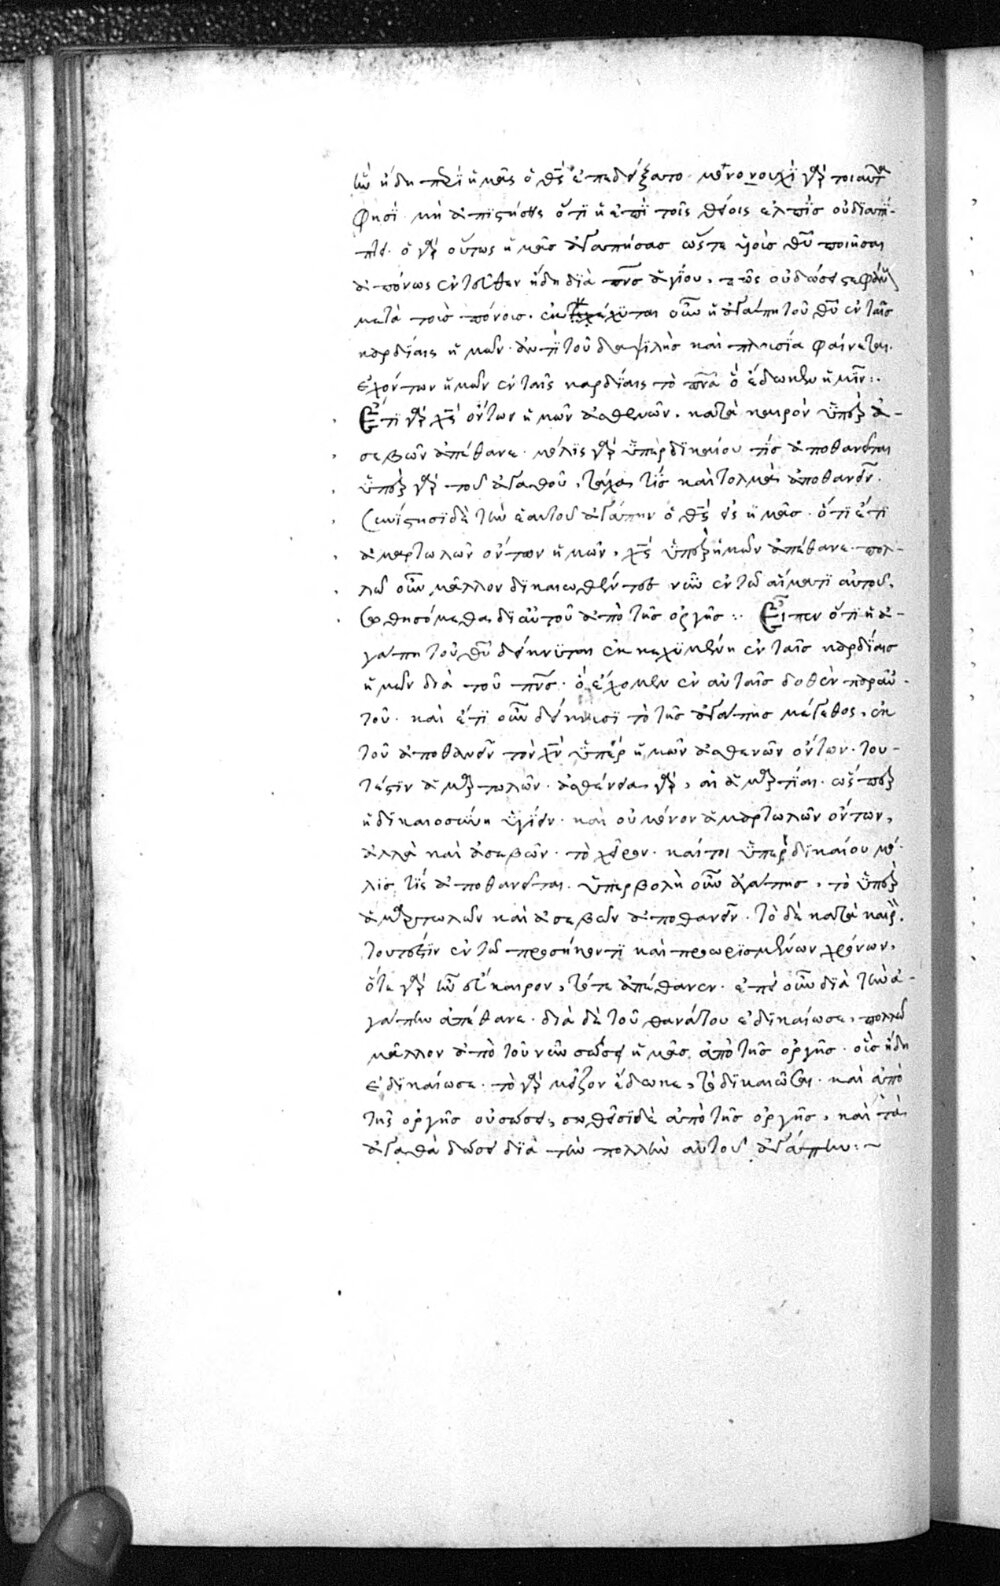 ἣν ἤδη περὶ ἡμᾶς ὁ θς ἐπεδείξατο· μονονουχὶ γὰρ τοιαῦτα
φησὶ μὴ ἀπιστήσῃς ὅτι ἡ ἐπὶ τοῖς θείοις ἐλπὶς οὐ διαπί-
πτει· ὁ γὰρ οὕτως ἡμᾶς ἀγαπήσας ὥστε υἱοὺς θυ ποιῆσαι
ἀπόνως ἐντεῦθεν ἤδη διὰ πνς ἁγίου, πῶς οὐ δώσει στεφάνους
μετὰ τοὺς πόνους· ἐκκέχυται οὖν ἡ ἀγάπη τοῦ θυ ἐν ταῖς
καρδίαις ἡμῶν· ἀντὶ τοῦ δαψιλὴς καὶ πλουσία φαίνεται
ἐχόντων ἡμῶν ἐν ταῖς καρδίαις τὸ πνα ὃ ἔδωκεν ἡμῖν:·
Ἔτι γὰρ χς ὄντων ἡμῶν ἀσθενῶν, κατὰ καιρὸν ὑπὲρ ἀ-
σεβῶν ἀπέθανε· μόλις γὰρ ὑπὲρ δικαίου τίς ἀποθανεῖται
ὑπὲρ γὰρ τοῦ ἀγαθοῦ, τάχα τίς καὶ τολμᾶ ἀποθανεῖν·
Συνίστησι δὲ τὴν ἑαυτοῦ ἀγάπην ὁ θς εἰς ἡμᾶς· ὅτι ἔτι
ἁμαρτωλῶν ὄντων ἡμῶν, χς ὑπὲρ ἡμῶν ἀπέθανε· πολ-
λῶ οὖν μᾶλλον δικαιωθέντες νῦν ἐν τῶ αἵματι αὐτοῦ,
σωθησόμεθα δι αὐτοῦ ἀπὸ τῆς ὀργῆς:· Εἶπεν ὅτι ἡ ἀ-
γάπη τοῦ θυ δείκνυται ἐκκεχυμένη ἐν ταῖς καρδίαις
ἡμῶν διὰ τοῦ πνς· ὃ ἔχομεν ἐν αὐταῖς δοθὲν παρ αὐ-
τοῦ· καὶ ἔτι οὖν δείκνυσι τὸ τῆς ἀγάπης μέγεθος, ἐκ
τοῦ ἀποθανεῖν τὸν χν ὑπὲρ ἡμῶν ἀσθενῶν ὄντων· του-
τέστιν ἁμαρτωλῶν· ἀσθένεια γὰρ, αἱ ἁμαρτίαι· ὥσπερ
ἡ δικαιοσύνη ὑγίεια· καὶ οὐ μόνον ἁμαρτωλῶν ὄντων,
ἀλλὰ καὶ ἀσεβῶν· τὸ χεῖρον· καίτοι ὑπὲρ δικαίου μό-
λις τίς ἀποθανεῖται· ὑπερβολὴ οὖν ἀγάπης, τὸ ὑπὲρ
ἁμαρτωλῶν καὶ ἀσεβῶν ἀποθανεῖν· τὸ δὲ κατὰ καιρ.
τουτέστιν ἐν τῶ προσήκοντι καὶ προωρισμένων χρόνων,
ὅτε γὰρ ἦν καιρον, τότε ἀπέθανεν· ἐπεὶ οὖν διὰ τὴν ἀ-
γάπην ἀπέθανε· διὰ δὲ τοῦ θανάτου ἐδικαίωσε, πολλῶ
μᾶλλον ἀπὸ τοῦ νῦν σώσει ἡμᾶς ἀπὸ τῆς ὀργῆς· οὓς ἤδη
ἐδικαίωσε· τὸ γὰρ μεῖζον ἔδωκε, τὸ δικαιῶσαι· καὶ ἀπὸ
τῆς ὀργῆς οὐ σώσει, σωθεῖσι δὲ ἀπὸ τῆς ὀργῆς, καὶ τὰ
ἀγαθὰ δώσει διὰ τὴν πολλὴν αὐτοῦ ἀγάπην:~